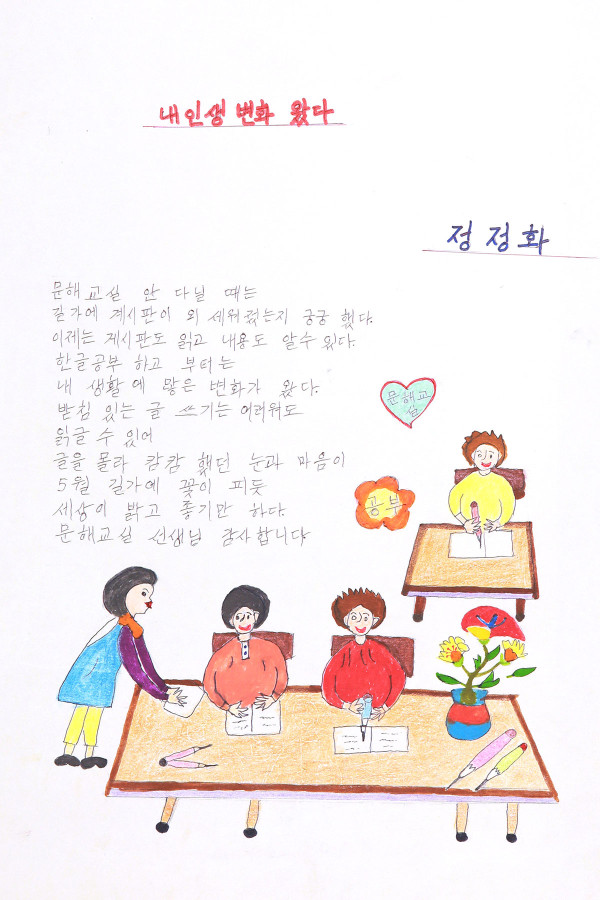 내 인생 변화 왔다
정정화
문해교실 안 다닐 때는
길가에 게시판이 외 세워젔는지 궁궁 했다.
이제는 게시판도 읽고 내용도 알수 있다.
한글공부 하고 부터는
내 생활에 많은 변화가 왔다.
받침 있는 글 쓰기는 어려워도
읽글 수 있어
글을 몰라 캄캄 했던 눈과 마음이
5월 길가에 꽃이 피듯
세상이 밝고 좋기만 하다.
문해교실 선생님 감사합니다
문해교
실
공부